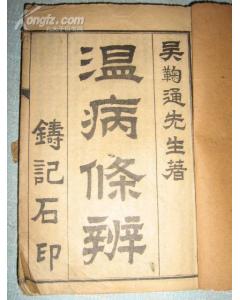 吴鞠通先生著
温病條辨
鑄記石印